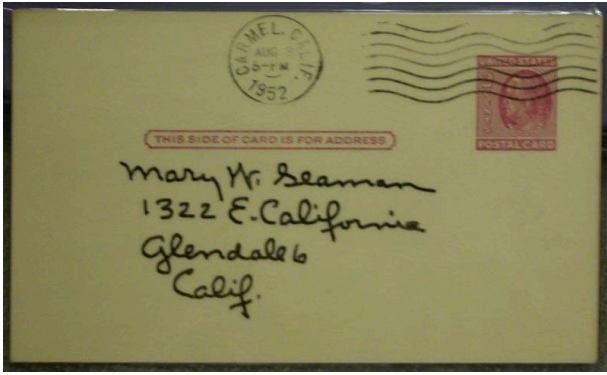 CARMEL, CALIF.
AUG 8
5-PM
1952
UNITED STATES
POSTAL CARD
THIS SIDE OF CARD IS FOR ADDRESS
Mary W. Seaman
1322 E. California
Glendale 6
Calif.